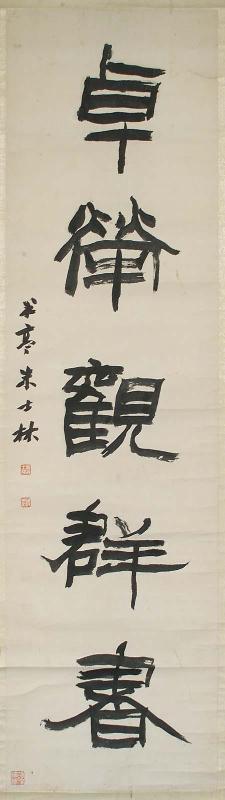 卓犖觀群書
亭朱士林